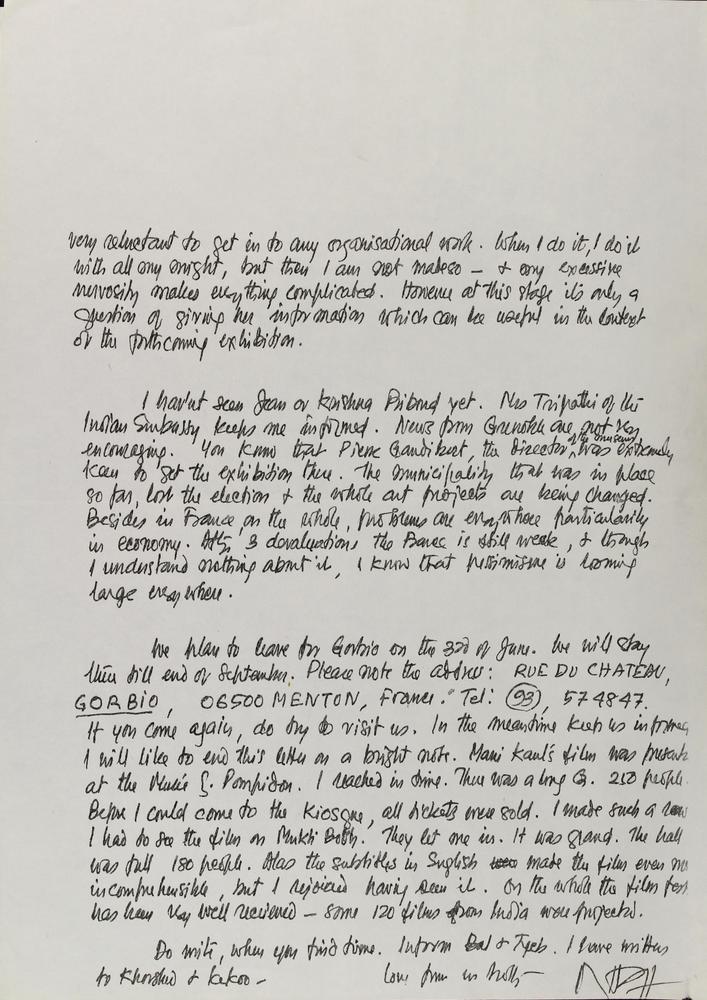 very reluctant to get in to any organisational work. When I do it, I do it
with all my might, but then I am not made so — & my excessive
nervosity makes everything complicated. However at this stage it's only a
question of giving her information which can be useful in the context
of the forthcoming exhibition.
I hav'nt seen Jean or Krishna Riboud yet. Mrs Tripathi of the
Indian Embassy keeps me informed. News from Grenoble are not very
encouraging. You know that Pierre Gaudibert, the Director of the museum, was extremely
keen to get the exhibition there. The municipality that was in place
so far, lost the election & the whole art projects are being changed.
Besides in France, on the whole, problems are everywhere particularly
in economy. After 3 devaluations the France is still weak, & though
I understand nothing about it, I know that pessimisme is looming
large everywhere.
We plan to leave for Gorbio on the 3rd of June. We will stay
there till end of September. Please note the address: RUE DU CHATEAU,
GORBIO, 06500 MENTON, France. Tel: (93), 574847.
If you come again, do try to visit us. In the meantime keep us informed
I will like to end this letter on a bright note. Mani Kaul's film was present
at the Musée G. Pompidou. I reached in time. There was a long Q. 250 people.
Before I could come to the Kiosque, all tickets were sold. I made such a row
I had to see the film on Mukti Bodh. They let me in. It was grand. The hall
was full 180 people. Alas the subtitles in English made the film even mo
incomprehensible, but I rejoiced having seen it. On the whole the film fest
has been very well recieved — some 120 films from India were projected.
Do write, when you find time. Inform Bal & Tyeb. I have written
to Khorshed & Kekoo — love from us both —